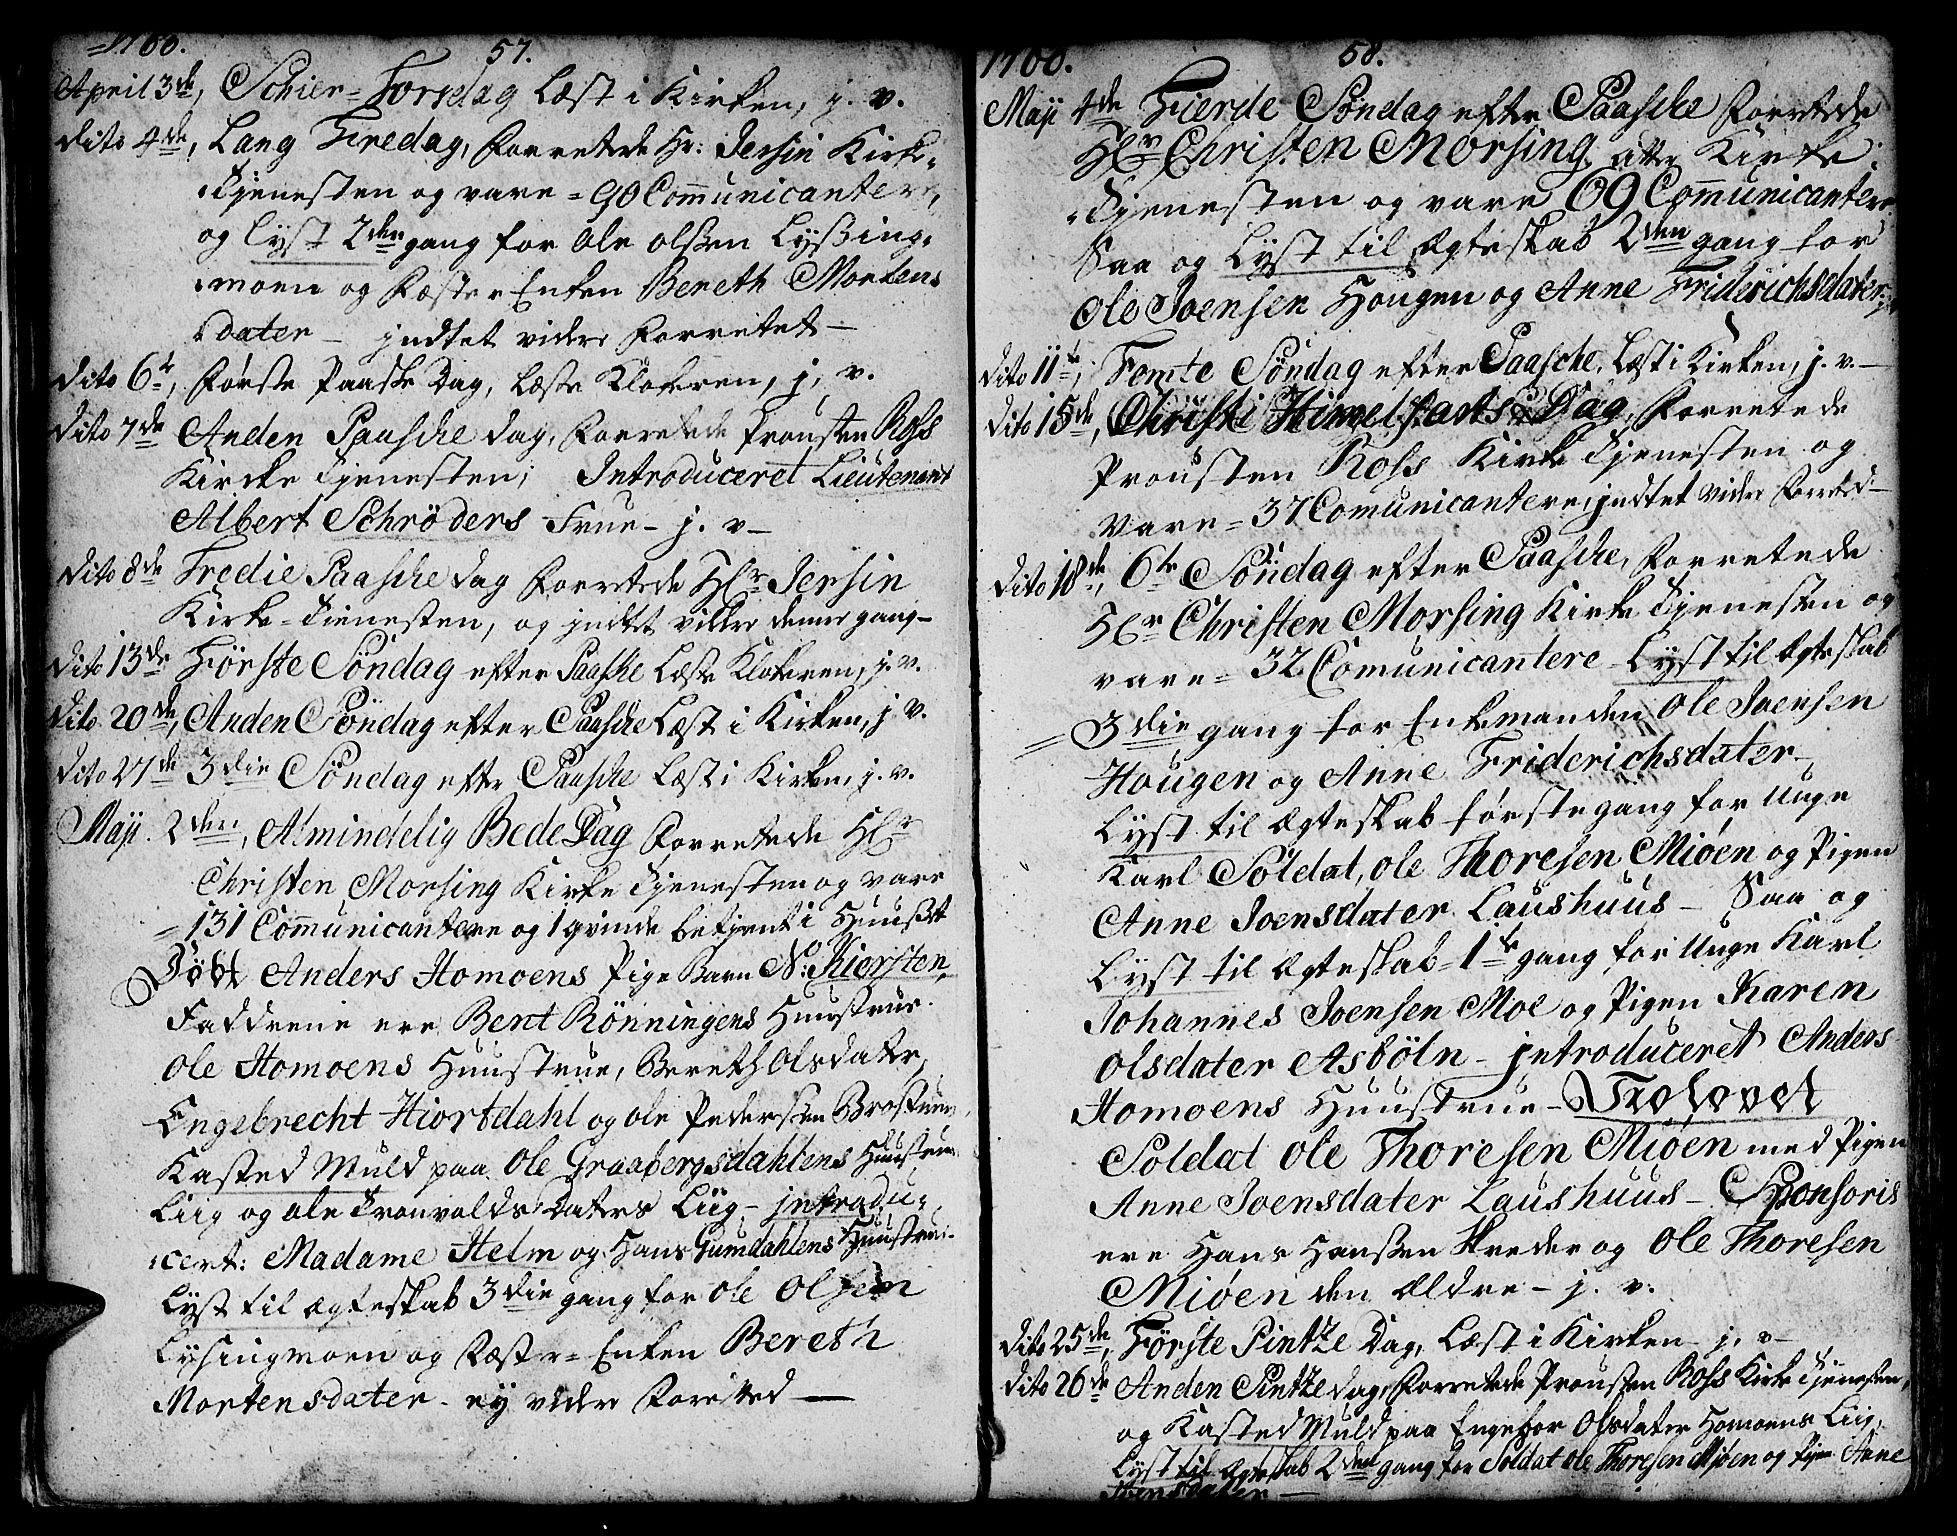 57.
April 3de, Schier-Torsdag læst i Kirken, j. v.
dito 4de, Lang Fredag, Forretede Hr: Jersin Kirke-
Tjenesten og vare = 90 Communicantere,
og lyst 2den gang for Ole Olssen Lyssing-
moen og Fæster Enken Bereth Mortens
dater – jndtet vider Forretet –
dito 6te, Første Paaske Dag, læste Klokeren, j. v.
dito 7de Anden Paasche dag, Forretede Prousten Ross
Kircke Tjenesten; Introduceret Lieutenant
Albert Schröders Frue – j. v –
dito 8de Tredie Paasche dag Forretede Hr Jersin
Kirke-Tienesten, og jndtet vider denne gang –
dito 13de Første Söndag efter Paasche læste Klokeren, j. v.
dito 20de, Anden Söndag efter Paasche læst i Kirken, j. v.
dito 27de 3die Söndag efter Paasche læst i Kirken, j. v.
Maji 2den, Almindelig Bede Dag Forretede Hr
Christen Morsing Kirke Tjenesten og vare
= 131 Communicantere og 1 qvinde betjent i Huusset
Döbt Anders Homoens Pige Barn N: Kiersten,
Faddrene ere Bent Rönningens Huustrue
Ole Homoens Huustrue, Bereth Olsdater,
Engebrecht Hiortdahl og Ole Pederssen
Kasted Muld paa Ole Graabergsdahlens Huustrues
Liig og Ole Tronvolds Daters Liig – jntrodu-
cert: Madame Helm og Hans Gumdahlens Huustrue.
Lyst til Ægteskab 3die gang for Ole Olsen
Lysingmoen og Fæster-Enken Bereth
Mortensdater – ey vider Forretted –
58.
Maji 4de Fierde Söndag efter Paasche Forretede
Hr Christen Morsing Kirke
Tjenesten og vare 69 Communicantere
Saa og Lyst til Ægteskab 2den gang for
Ole Joensen Hougen og Anne Friderichsdater
dito 11te, Femte Söndag efter Paasche, Læst i Kirken, j. v. –
dito 15de, Christi Himelfarts Dag, Forretede
Prousten Ross Kirke Tjenesten og
vare = 37 Comunicantere, jndtet vider Forreted –
dito 18de, 6te Söndag efter Paasche, Forretede
Hr Christen Morsing Kirke Tjenesten og
vare = 32 Comunicantere – Lyst til Ægteskab
= 3die gang for Enkemanden Ole Joensen
Hougen og Anne Friderichsdater –
Lyst til Ægteskab förste gang for unge
Karl Soldat, Ole Thoresen Miøen og Pigen
Anne Joensdater Laushuus – Saa og
Lyst til Ægteskab 1te gang for unge Karl
Johannes Joensen Moe og Pigen Karen
Olsdater Asböln – jntroduceret Anders
Homoens Huustrue – Trolovet
Soldat Ole Thoresen Miøen med Pigen
Anne Joensdater Laushuus – Sponsoris
ere Hans Hanssen Skreder og Ole Thoresen
Miøen den Ældre – j. v.
dito 25de, Første Pintze Dag, Læst i Kirken j. v –
dito 26de Anden Pintze dag, Forretede Prousten Ross Kirke Tjenesten,
og Kasted Muld paa Engebor Olsdater Homoens Liig,
Lyst til Ægteskab 2den gang for Soldat Ole Thoresen Miøen og Pigen Anne
Joensdater –